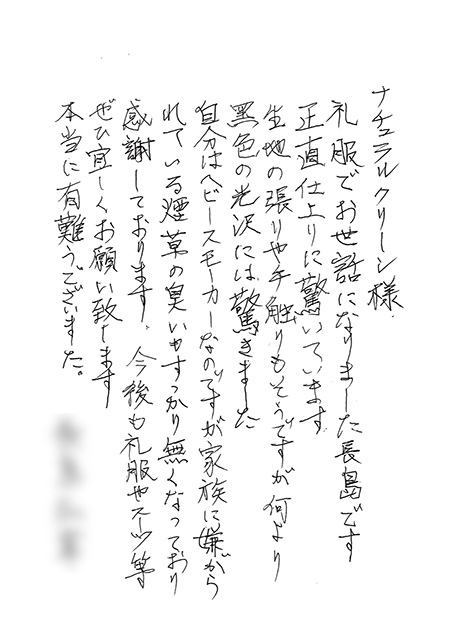 ナチュラルクリーン様
礼服でお世話になりました長島です
正直仕上りに驚いています
生地の張りや手触りもそうですが何より
黒色の光沢には驚きました
自分はヘビースモーカーなのですが家族に嫌がら
れている煙草の臭いもすっかり無くなっており
感謝しております、今後も礼服やスーツ等
ぜひ宜しくお願い致します
本当に有難うございました。